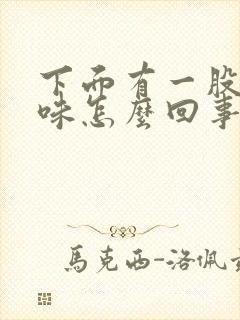 下面有一股
味怎麼回事
馬克西-洛佩